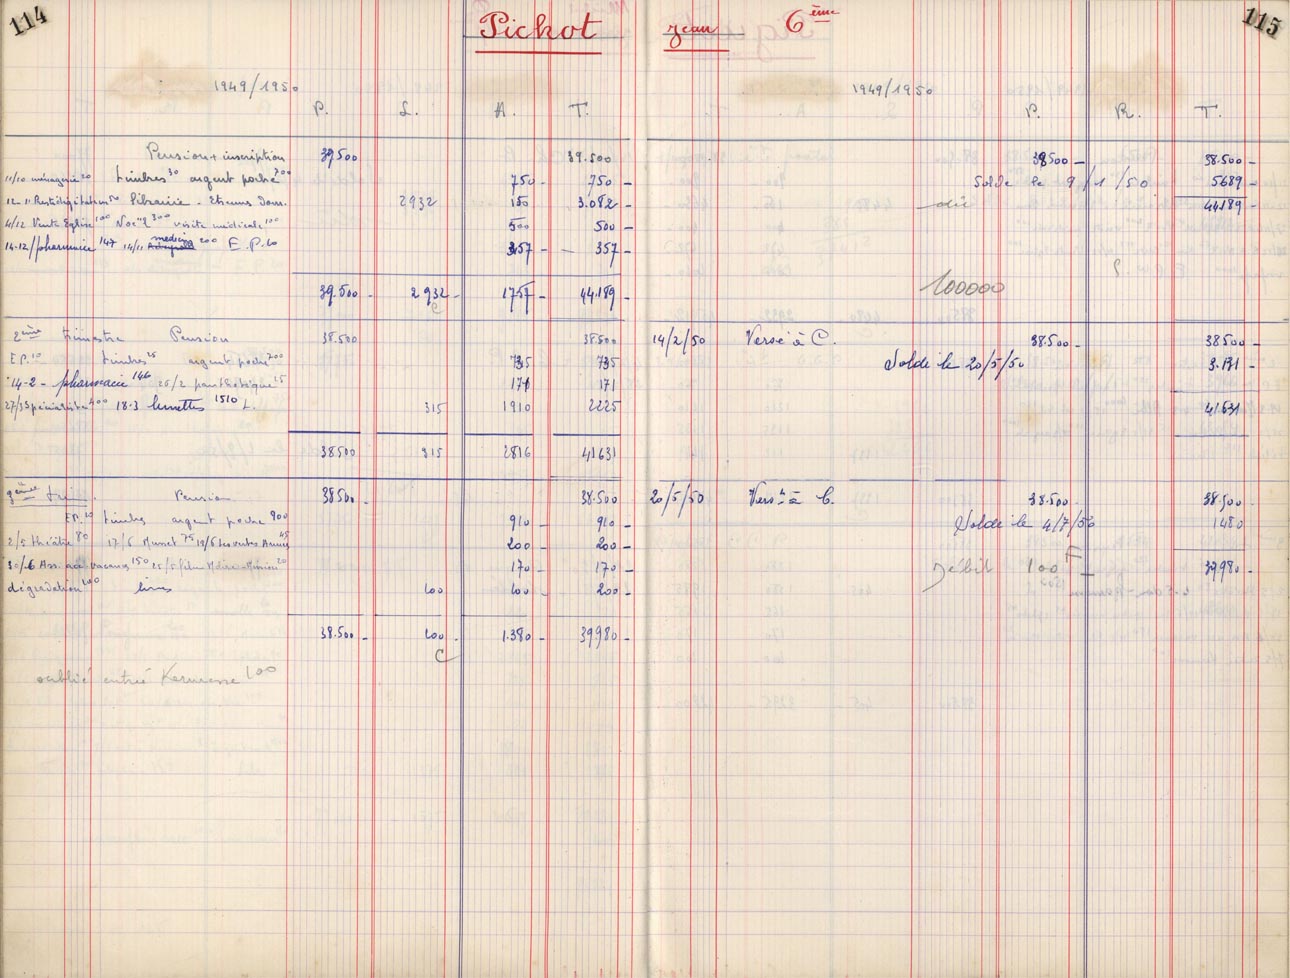 114
Pichot Jean 6ème
115
1949/1950
P. L. A. T.
Pension + inscription 39500 39.500
11/10 ménagerie 20 timbres 30 argent poche 700 750 - 750 -
12-11 Prestidigitation 50 librairie - Etrennes dom. 2932 150 3.082 -
4/12 Vente Eglise 100 Noël 300 visite médicale 100 500 500 -
14-12/pharmacie 147 14/11 medecin 200 E.P. 10 357 - 357 -
39.500 - 2932 - 1757 - 44.189 -
C
2ème trimestre Pension 38.500 38.500
E P. 10 timbres 25 argent poche 700 735 735
14-2 - pharmacie 146 25/2 panthotèque 25 171 171
27/3 Spécialiste 400 18-3 lunettes 1510 L. 315 1910 2225
38500 315 2816 41631
3ème trim. Pension 38500 - 38.500 -
EP. 10 timbres argent poche 900 910 - 910 -
2/5 théâtre 80 17/5 Musset 75 19/5 Les vertes Années 45 200 - 200 -
30/6 Ass. acc. vacances 150 25/5 film Melies-Minion 20 170 - 170 -
dégradation 100 livres 100 100 - 200 -
38.500 - 100 - 1.380 - 39980 -
C
oublié entrée Kermesse 100
1949/1950
P. R. T.
38500 - 38.500 -
Solde le 9/1/50 5689 -
dû 44189 -
100000
14/2/50 Versé à C. 38.500 - 38500 -
Solde le 20/5/50 3.131 -
41631
20/5/50 Vers t à C. 38.500 - 38.500 -
Solde le 4/7/50 1480
Débit 100 F 39980 -